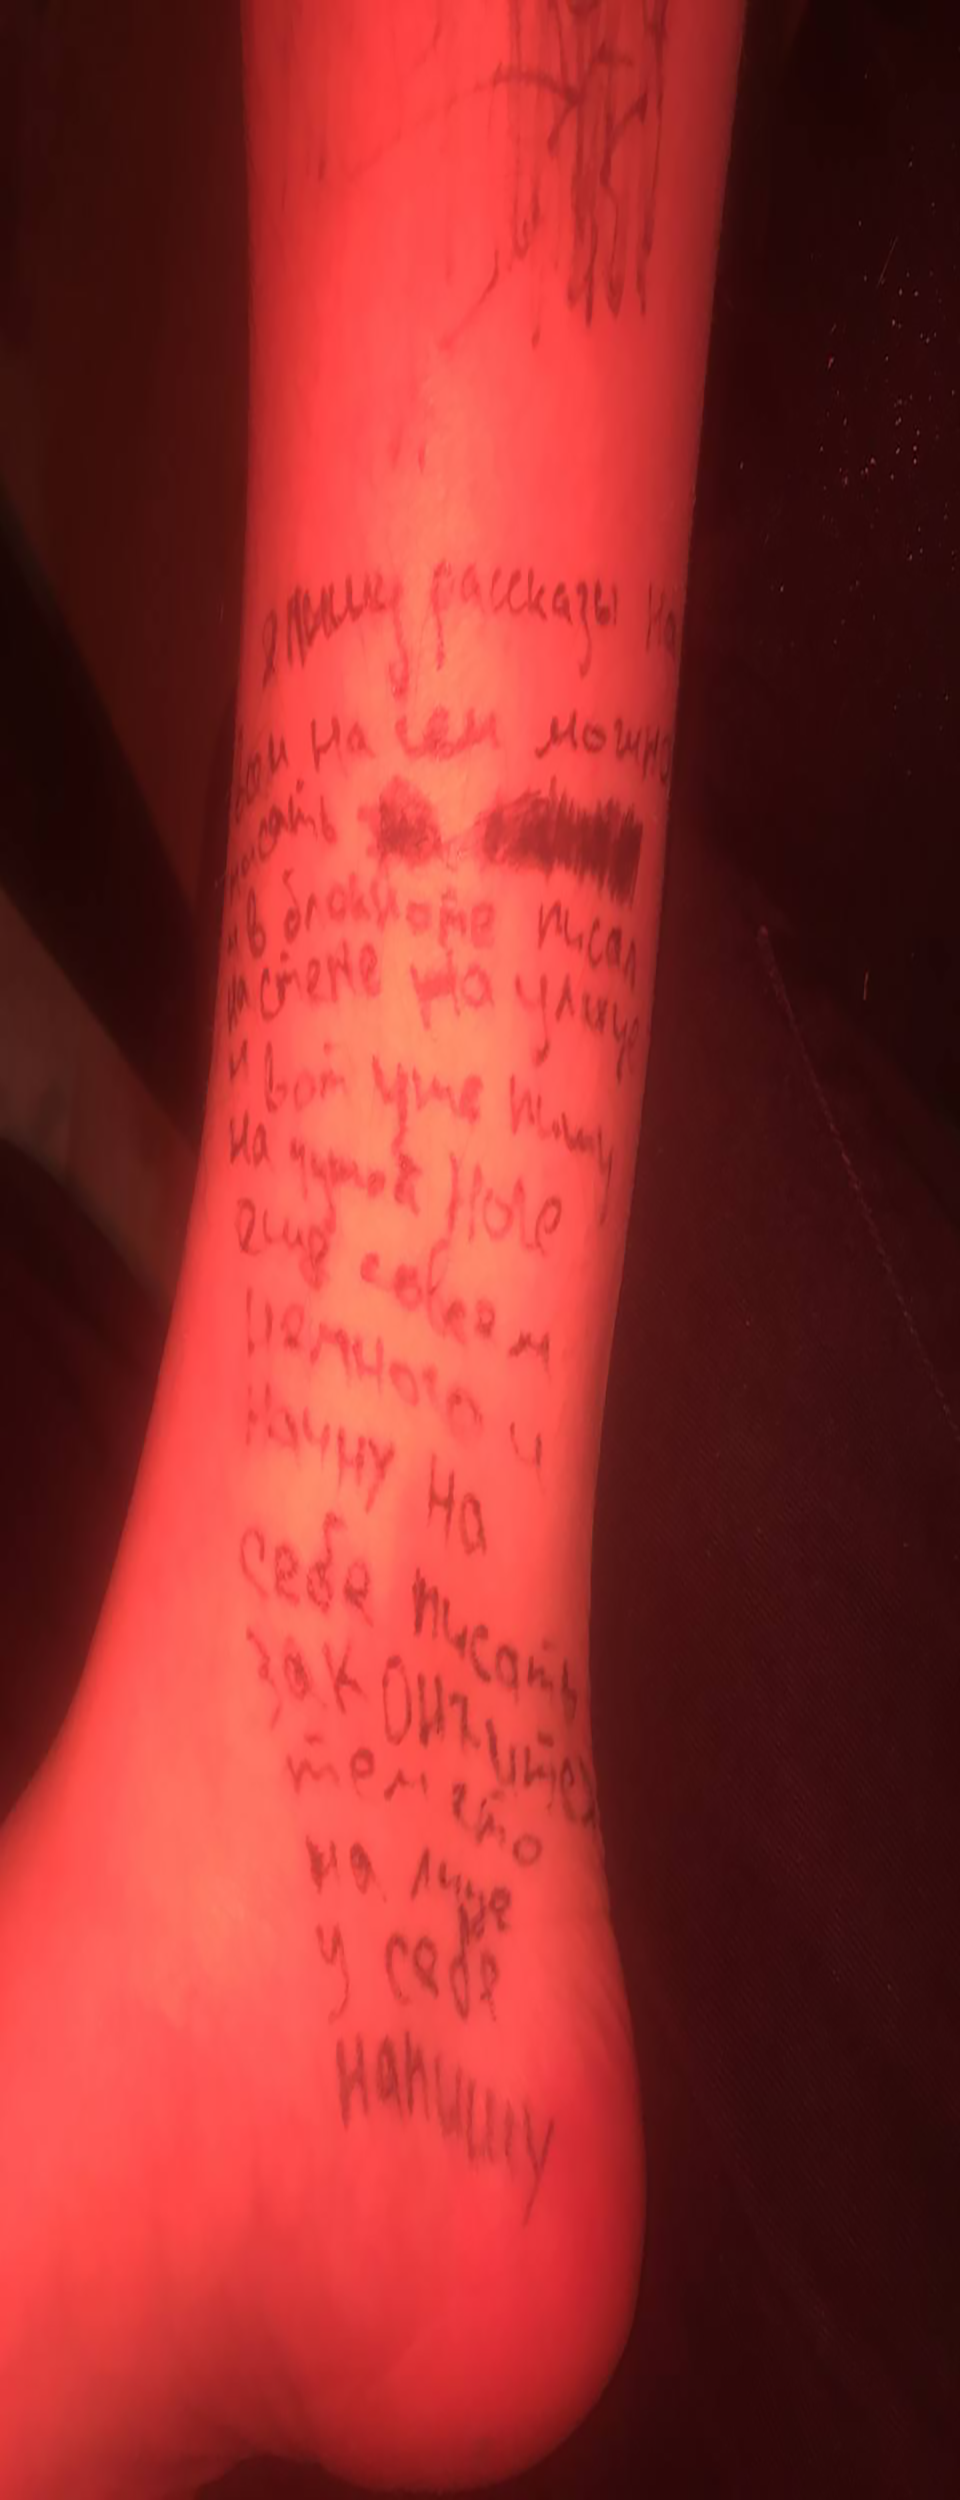 я пишу рассказы на
всём на чём можно
писать
и в блокноте писал
на стене на улице
и вот уже пишу
на чужой ноге
ещё совсем
немного и
начну на
себе писать
зак ончится
тем что
на лице
у себя
напишу